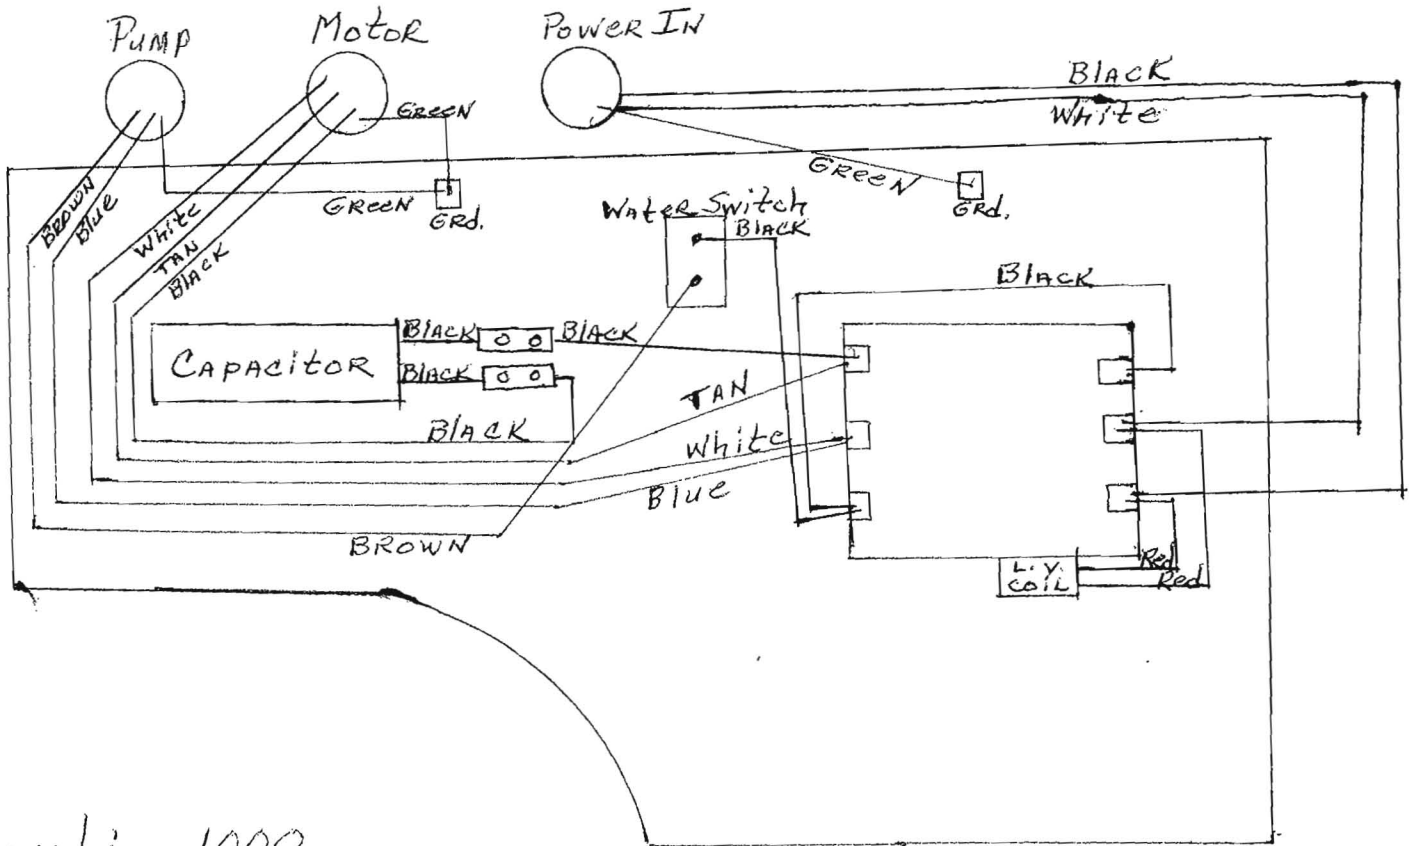 Pump
Motor
Power In
Black
White
Green
Green
Green
Grd.
Grd.
Brown
Blue
White
Tan
Black
Water Switch
Black
Black
Capacitor
Black
Black
Black
Tan
Black
White
Blue
Brown
L.V.
Coil
Red
Red
1000